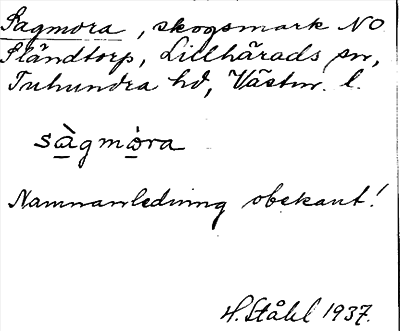 Sagmora, skogsmark NO
Ståndtorp, Lillhärads sn,
Tuhundra hd, Västm. l.
sàgmòra
Namnanledning obekant!
H. Ståhl 1937.